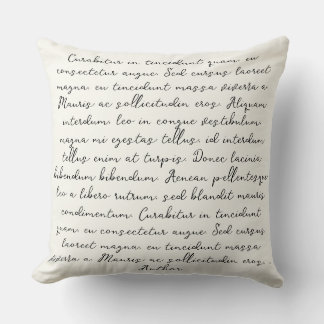 Curabitur in tincidunt quam, eu
consectetur augue. Sed cursus laoreet
magna, eu tincidunt massa viverra a.
Mauris ac sollicitudin eros. Aliquam
interdum leo in congue vestibulum.
magna mi egestas tellus, id interdum
tellus enim at turpis. Donec lacinia
bibendum bibendum. Aenean pellentesque
leo a libero rutrum, sed blandit mauris
condimentum. Curabitur in tincidunt
quam, eu consectetur augue. Sed cursus
laoreet magna, eu tincidunt massa
viverra a. Mauris ac sollicitudin eros.
Author